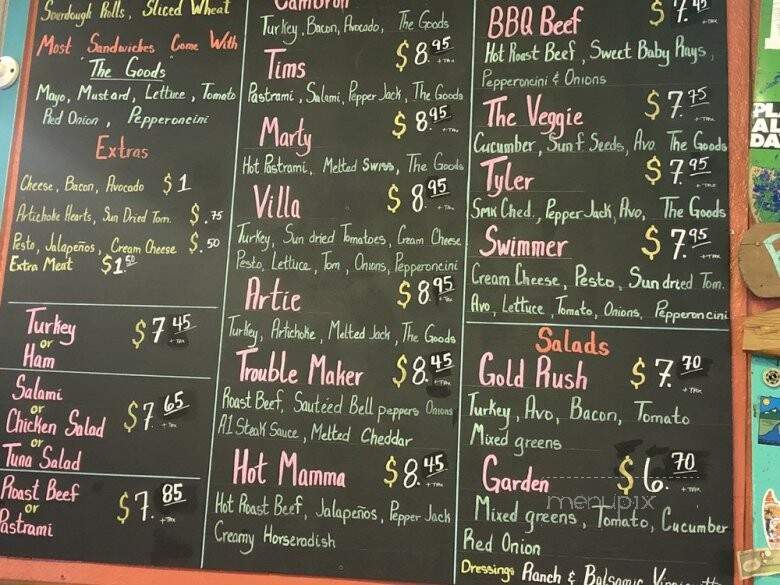 Sourdough Rolls, Sliced Wheat
Most Sandwiches Come With
"The Goods"
Mayo, Mustard, Lettuce, Tomato
Red Onion, Pepperoncini
Extras
Cheese, Bacon, Avocado $1
Artichoke Hearts, Sun Dried Tom. $.75
Pesto, Jalapeños, Cream Cheese $.50
Extra Meat $1.50
Turkey
or
Ham
$7.45
+TAX
Salami
or
Chicken Salad
or
Tuna Salad
$7.65
+TAX
Roast Beef
or
Pastrami
$7.85
+TAX
Cambron
Turkey, Bacon, Avocado, The Goods
Tims $8.95
+TAX
Pastrami, Salami, Pepper Jack, The Goods
Marty $8.95
+TAX
Hot Pastrami, Melted Swiss, The Goods
Villa $8.95
+TAX
Turkey, Sun dried Tomatoes, Cream Cheese
Pesto, Lettuce, Tom, Onions, Pepperoncini
Artie $8.95
+TAX
Turkey, Artichoke, Melted Jack, The Goods
Trouble Maker $8.45
+TAX
Roast Beef, Sautéed Bell peppers Onions
A1 Steak Sauce, Melted Cheddar
Hot Mamma $8.45
+TAX
Hot Roast Beef, Jalapeños, Pepper Jack
Creamy Horseradish
BBQ Beef $7.45
+TAX
Hot Roast Beef, Sweet Baby Rays,
Pepperoncini & Onions
The Veggie $7.75
+TAX
Cucumber, Sunf. Seeds, Avo. The Goods
Tyler $7.95
+TAX
Smk Ched., Pepper Jack, Avo, The Goods
Swimmer $7.95
+TAX
Cream Cheese, Pesto, Sun dried Tom.
Avo, Lettuce, Tomato, Onions, Pepperoncini
Salads
Gold Rush $7.70
+TAX
Turkey, Avo, Bacon, Tomato
Mixed greens
Garden $6.70
+TAX
menupix
Mixed greens, Tomato, Cucumber
Red Onion
Dressings Ranch & Balsamic